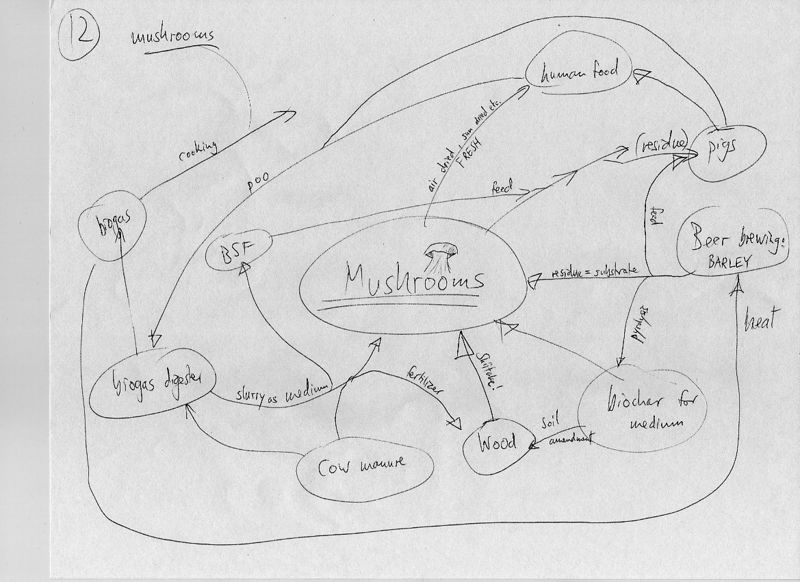 12
mushrooms
human food
cooking
air dried + sun dried etc.
FRESH
(residue)
pigs
poo
feed
feed
biogas
BSF
Beer brewing:
BARLEY
Mushrooms
residue = substrate
heat
pyrolysis
biogas digester
slurry as medium
fertilizer
Shiitake!
biochar for
medium
soil
amendment
Wood
Cow manure